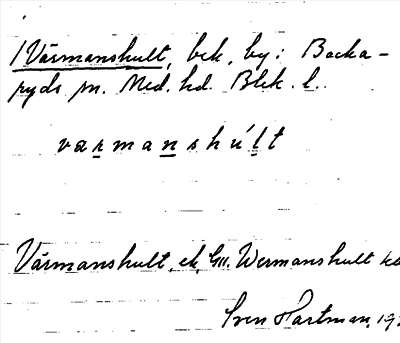 1 Värmanshult, bek. by i Backa-
ryds sn. Med. hd. Blek. l.
værmanshúlt
Värmanshult, ek, GII. Wermanshult
Sven Hartman, 19